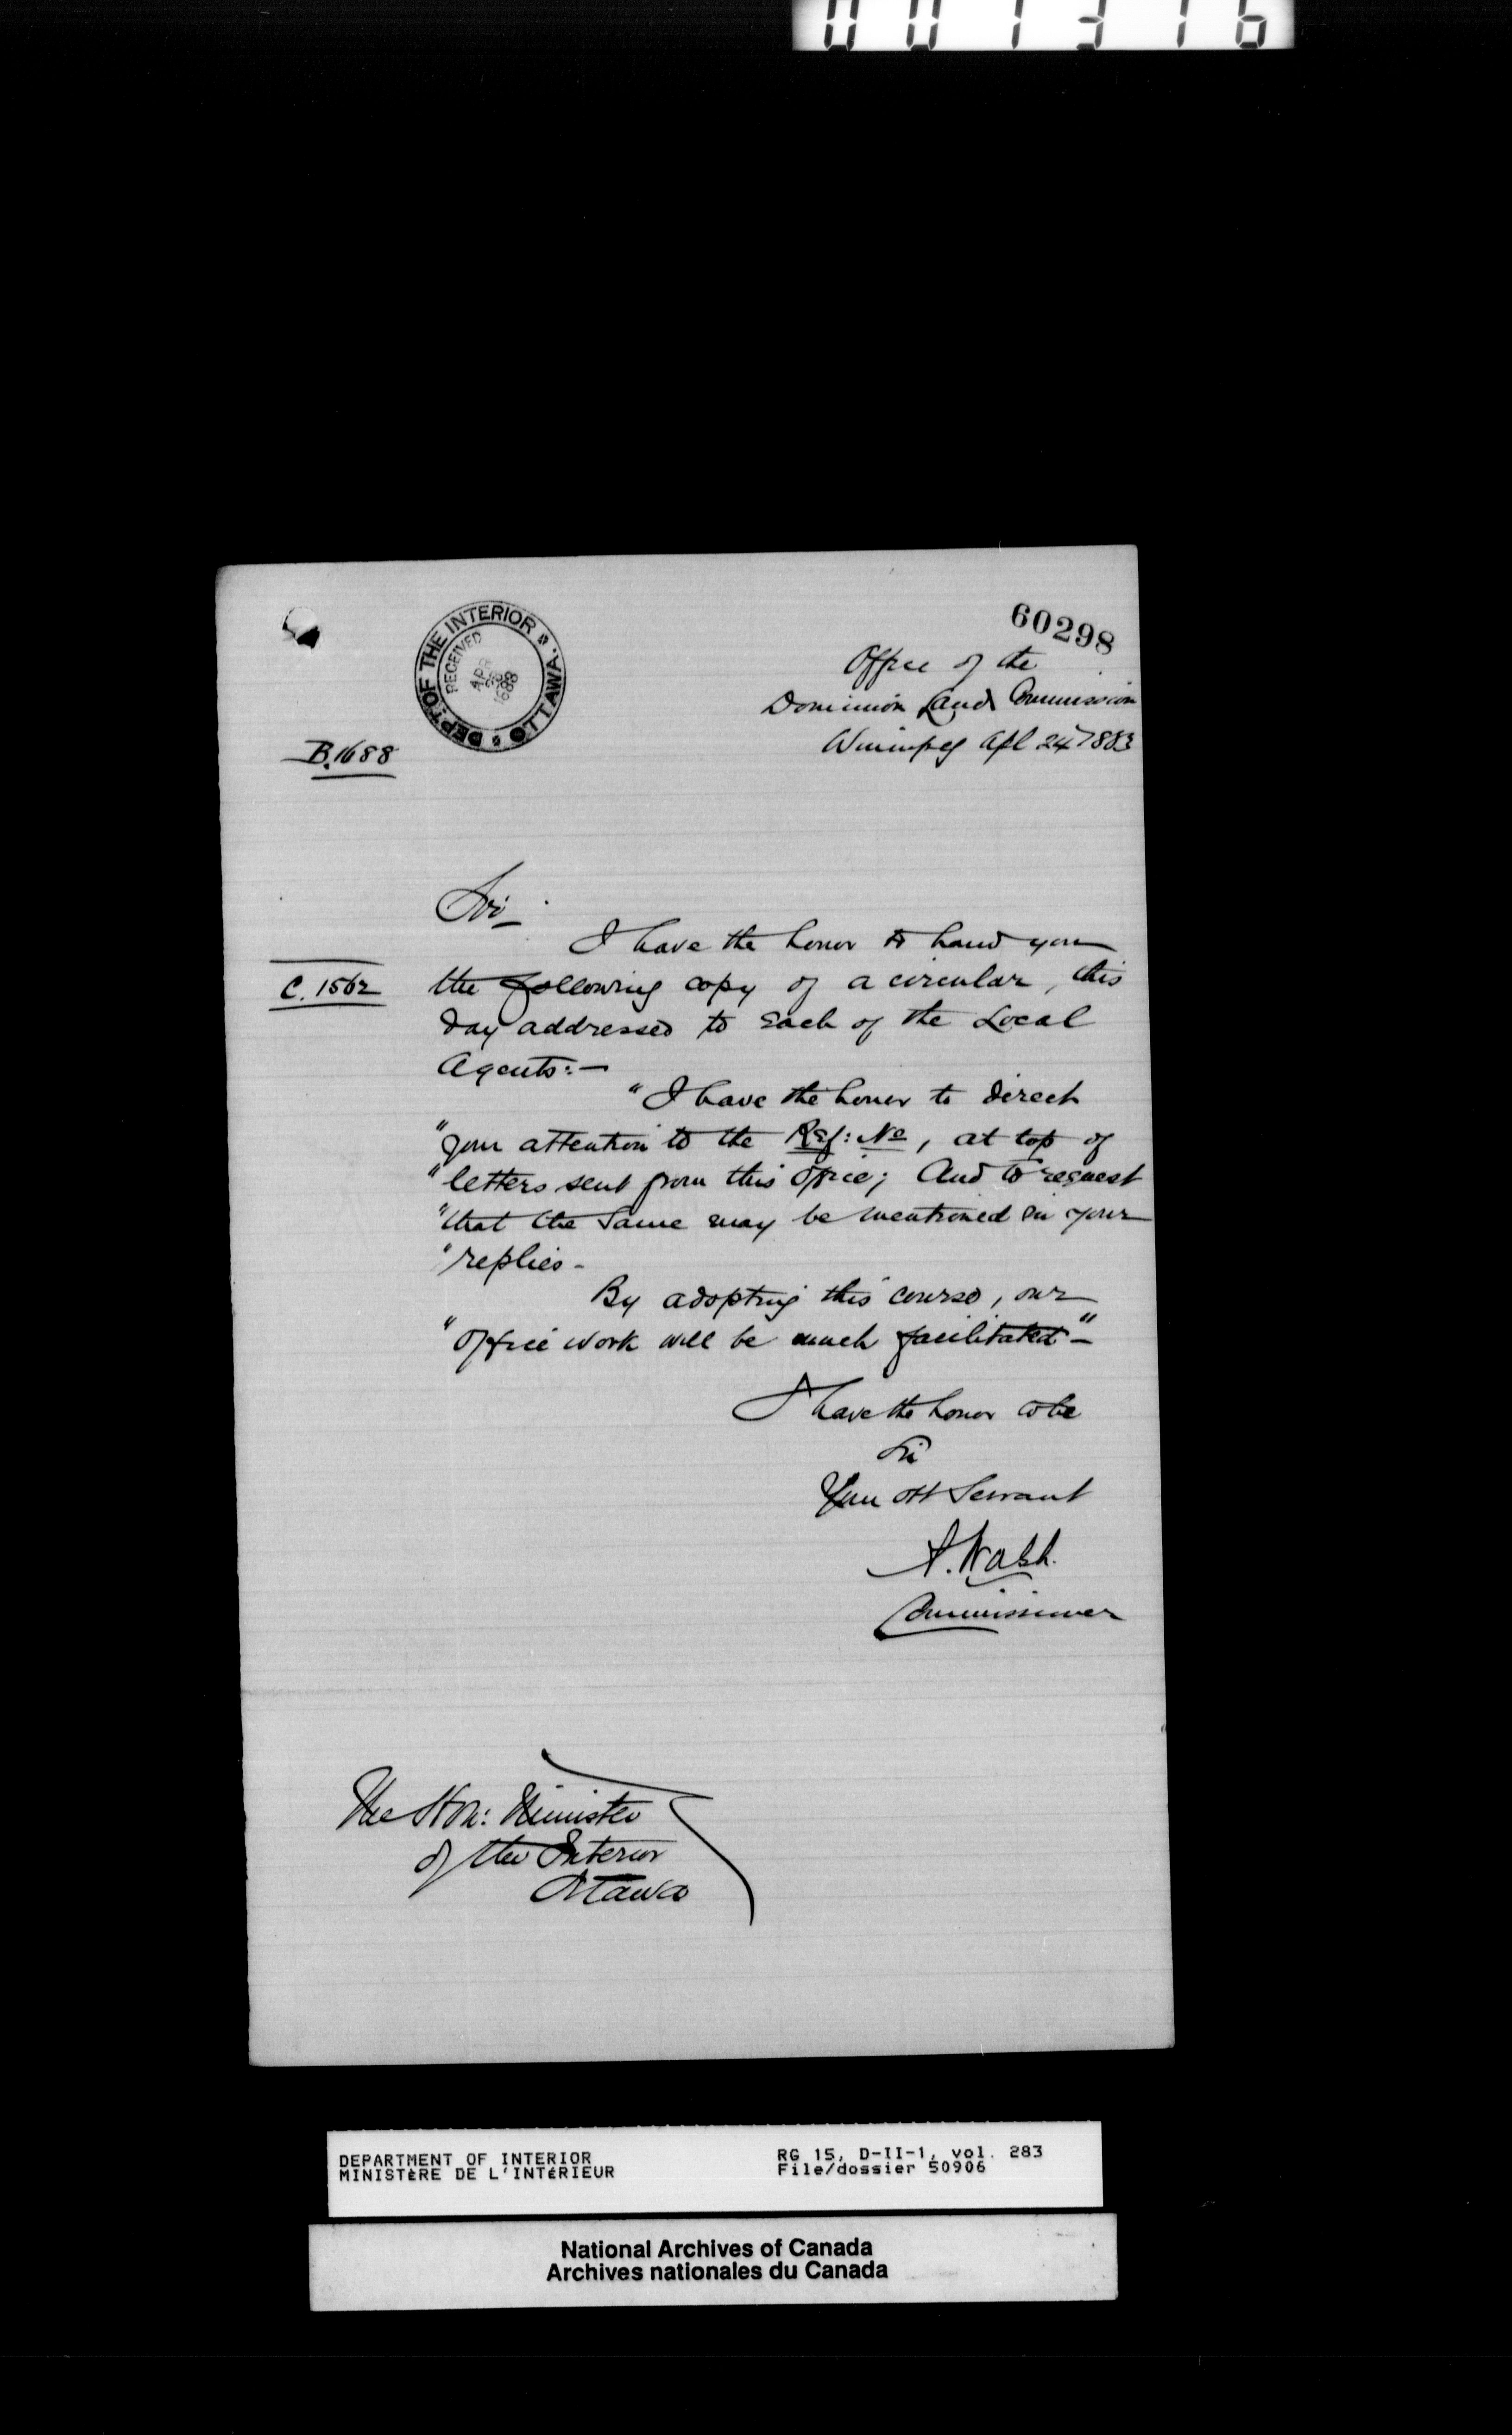 001316
60298
DEPT. OF THE INTERIOR
OTTAWA.
RECEIVED
Office of the
Dominion Land Commission
Winnipeg Apl 24 1883
B.1688
Sir
I have the honor to hand you
C. 1562
the following copy of a circular, this
day addressed to Each of the Local
Agents:—
"I have the honor to direct
"your attention to the Ref: No, at top of
"letters sent from this Office; And to request
"that the Same may be mentioned in your
"replies -
By adopting this course, our
"Office work will be much facilitated"-
I have the honor to be
Sir
Your Obt Servant
A. Walsh.
Commissioner
The Hon: Minister
of the Interior
Ottawa
DEPARTMENT OF INTERIOR
MINISTÈRE DE L'INTÉRIEUR
RG 15, D-II-1, vol. 283
File/dossier 50906
National Archives of Canada
Archives nationales du Canada